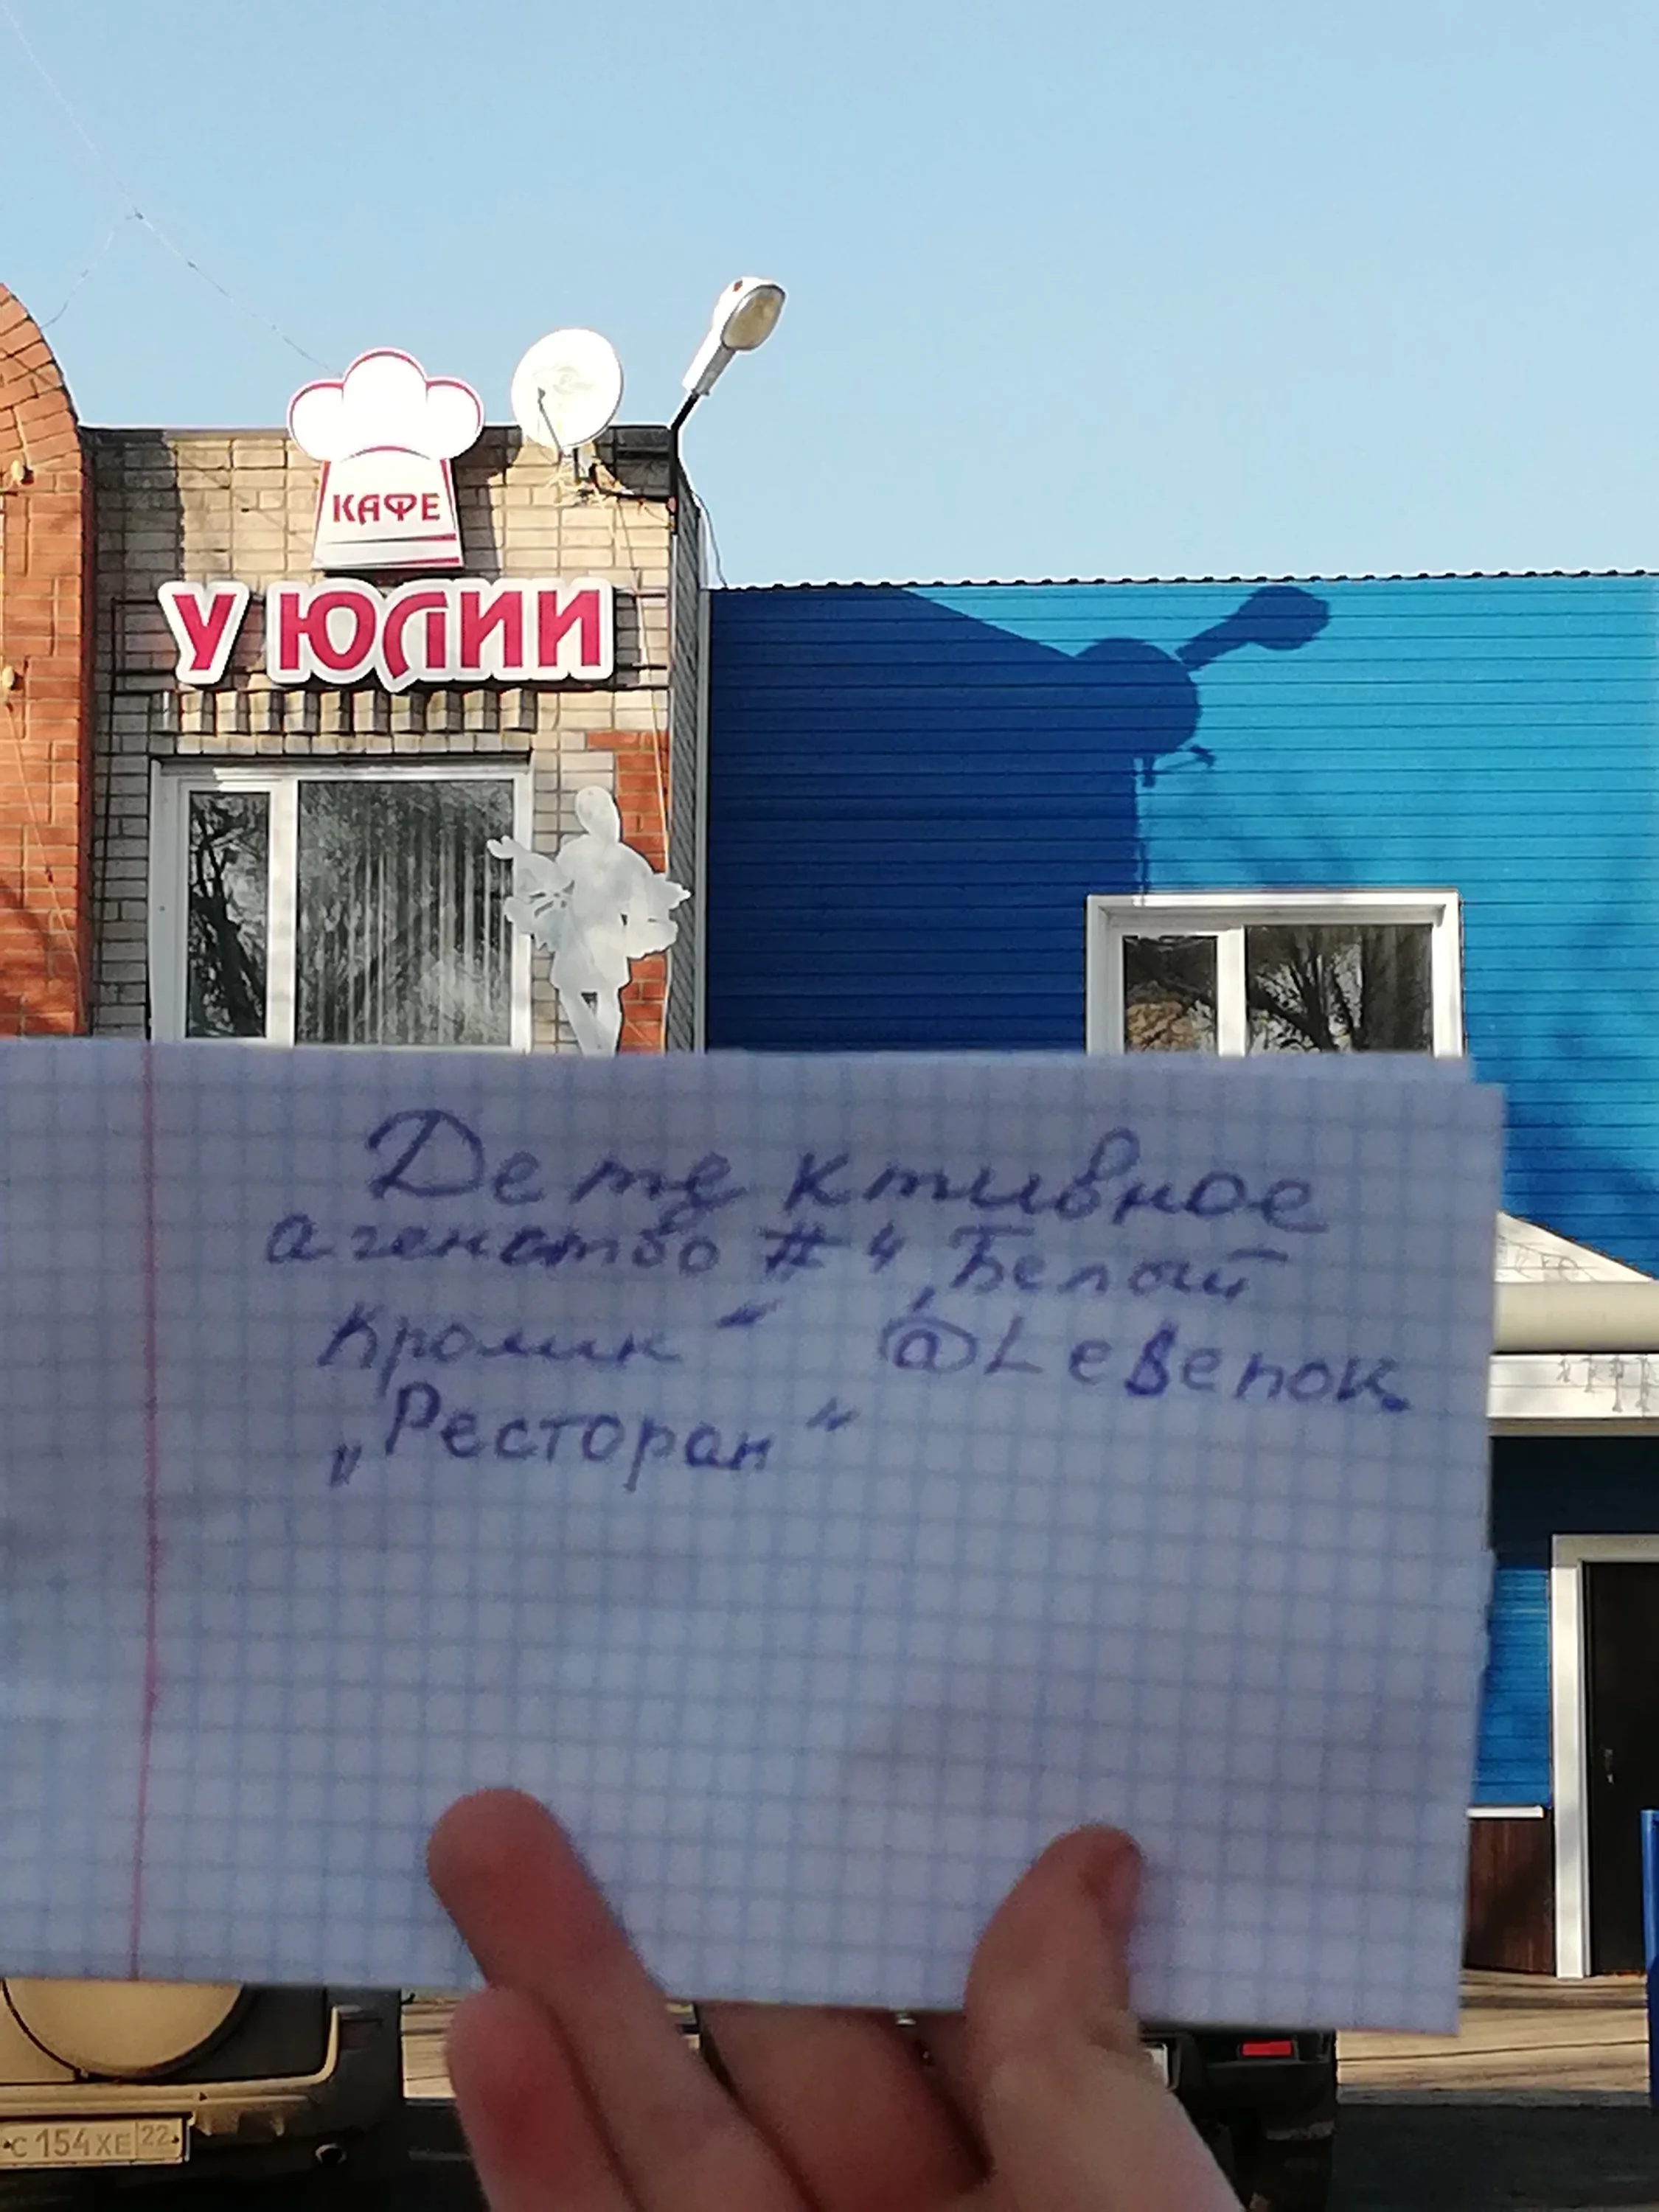 КАФЕ
У ЮЛИИ
Детективное
агенство #4 „Белый
Кролик“ @Leвenok
„Ресторан“
с154хе 22